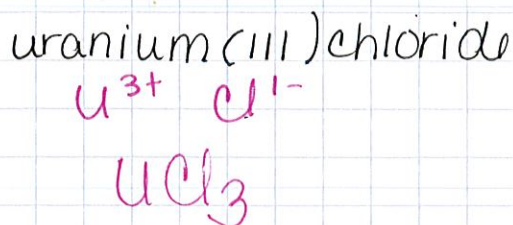 uranium(III)chloride
U³⁺ Cl¹⁻
UCl₃